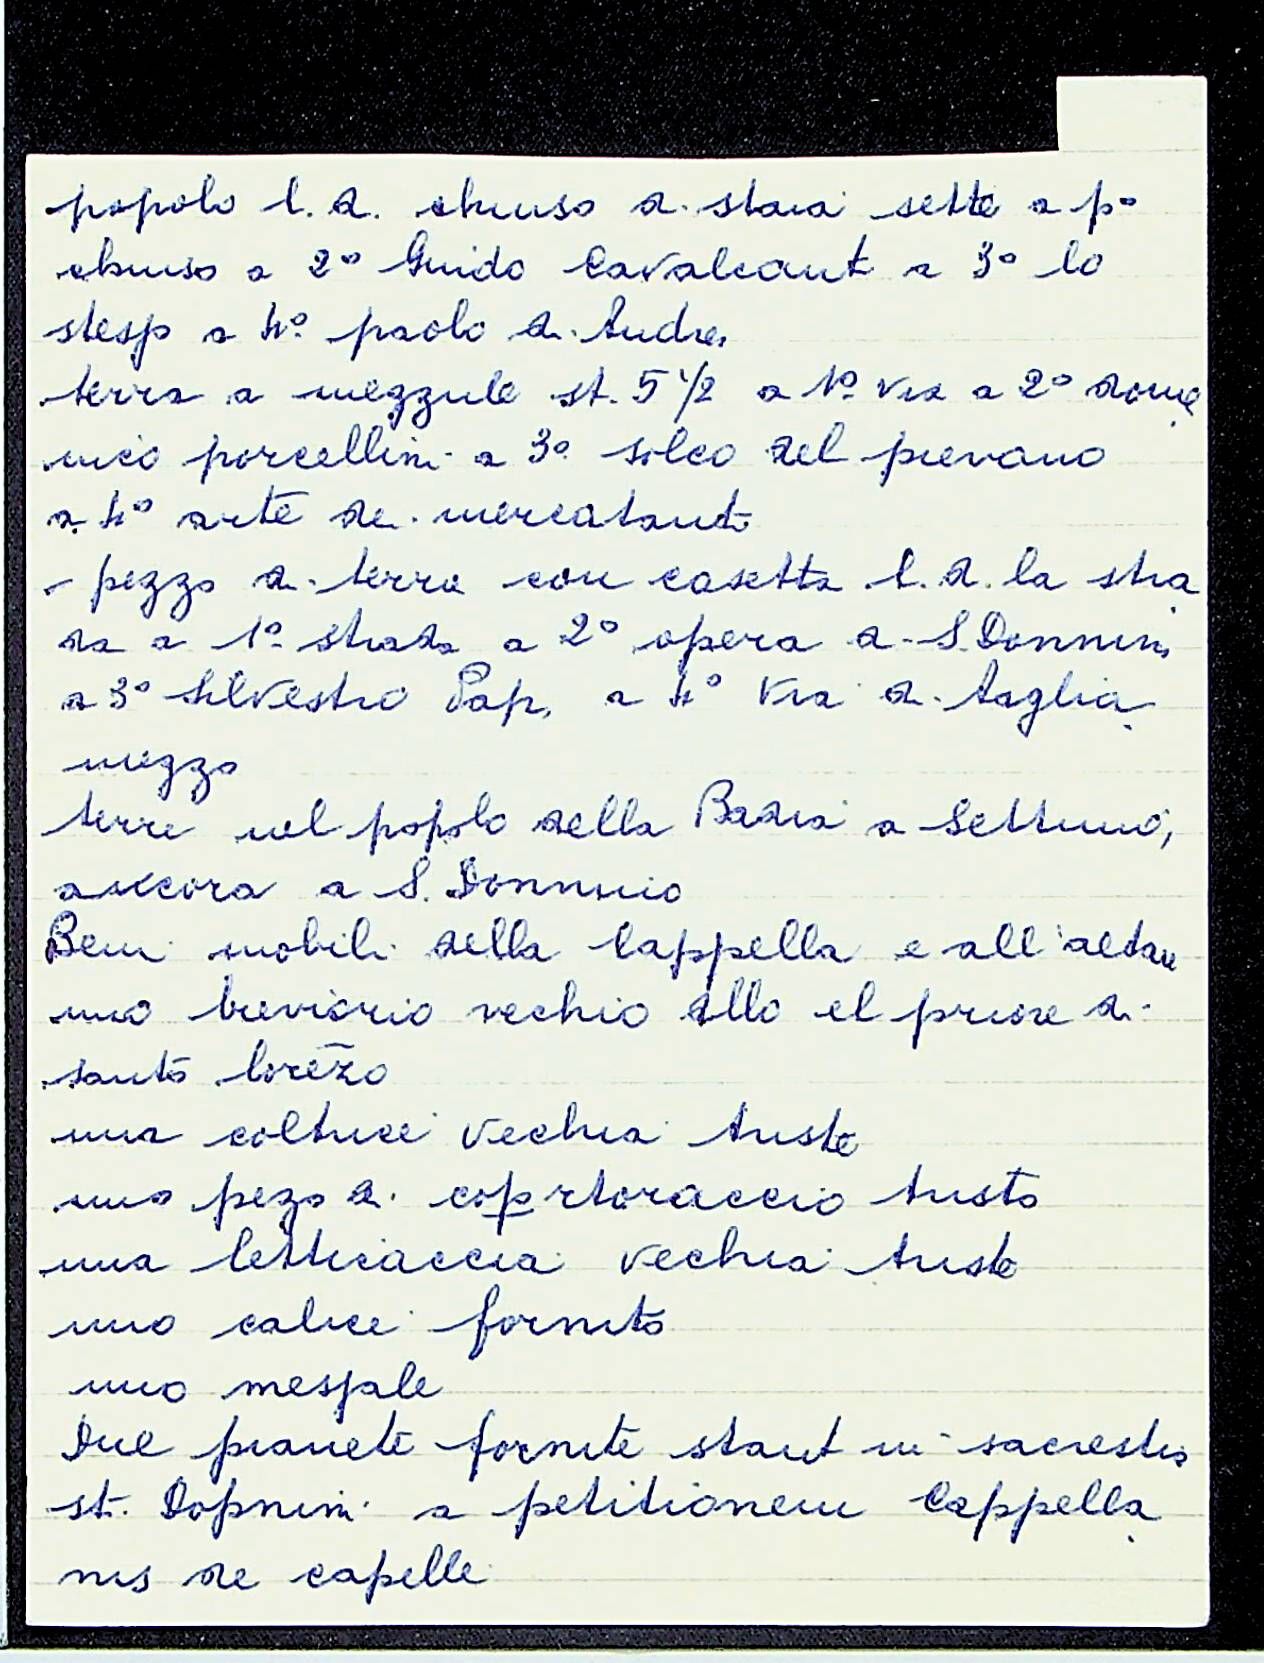 popolo l. d. chiuso di staia sette a pº
chiuso a 2º Guido Cavalcanti a 3º lo
stesso a 4º paolo di Andrea
terra a mezzule st. 5 1/2 a 1º via a 2º dome
nico porcellini a 3º solco del pievano
a 4º arte dei mercatanti
- pezzo di terra con casetta l. d. la stra
da a 1º strada a 2º opera di S. Donnino
a 3º Silvestro Pap. a 4º via di Taglia
mezzo
terre nel popolo della Badia a Settimo,
ancora a S. Donnino
Beni mobili della Cappella e all'altare
uno breviario vechio allo el priore di
santo lorēzo
una coltrice vechia trista
uno pezo di copertoraccio tristo
una lettieraccia vechia trista
uno calice fornito
uno messale
Due pianete fornite stant in sacrestia
st. Dopnini a petitionem Cappella
nis de capelle